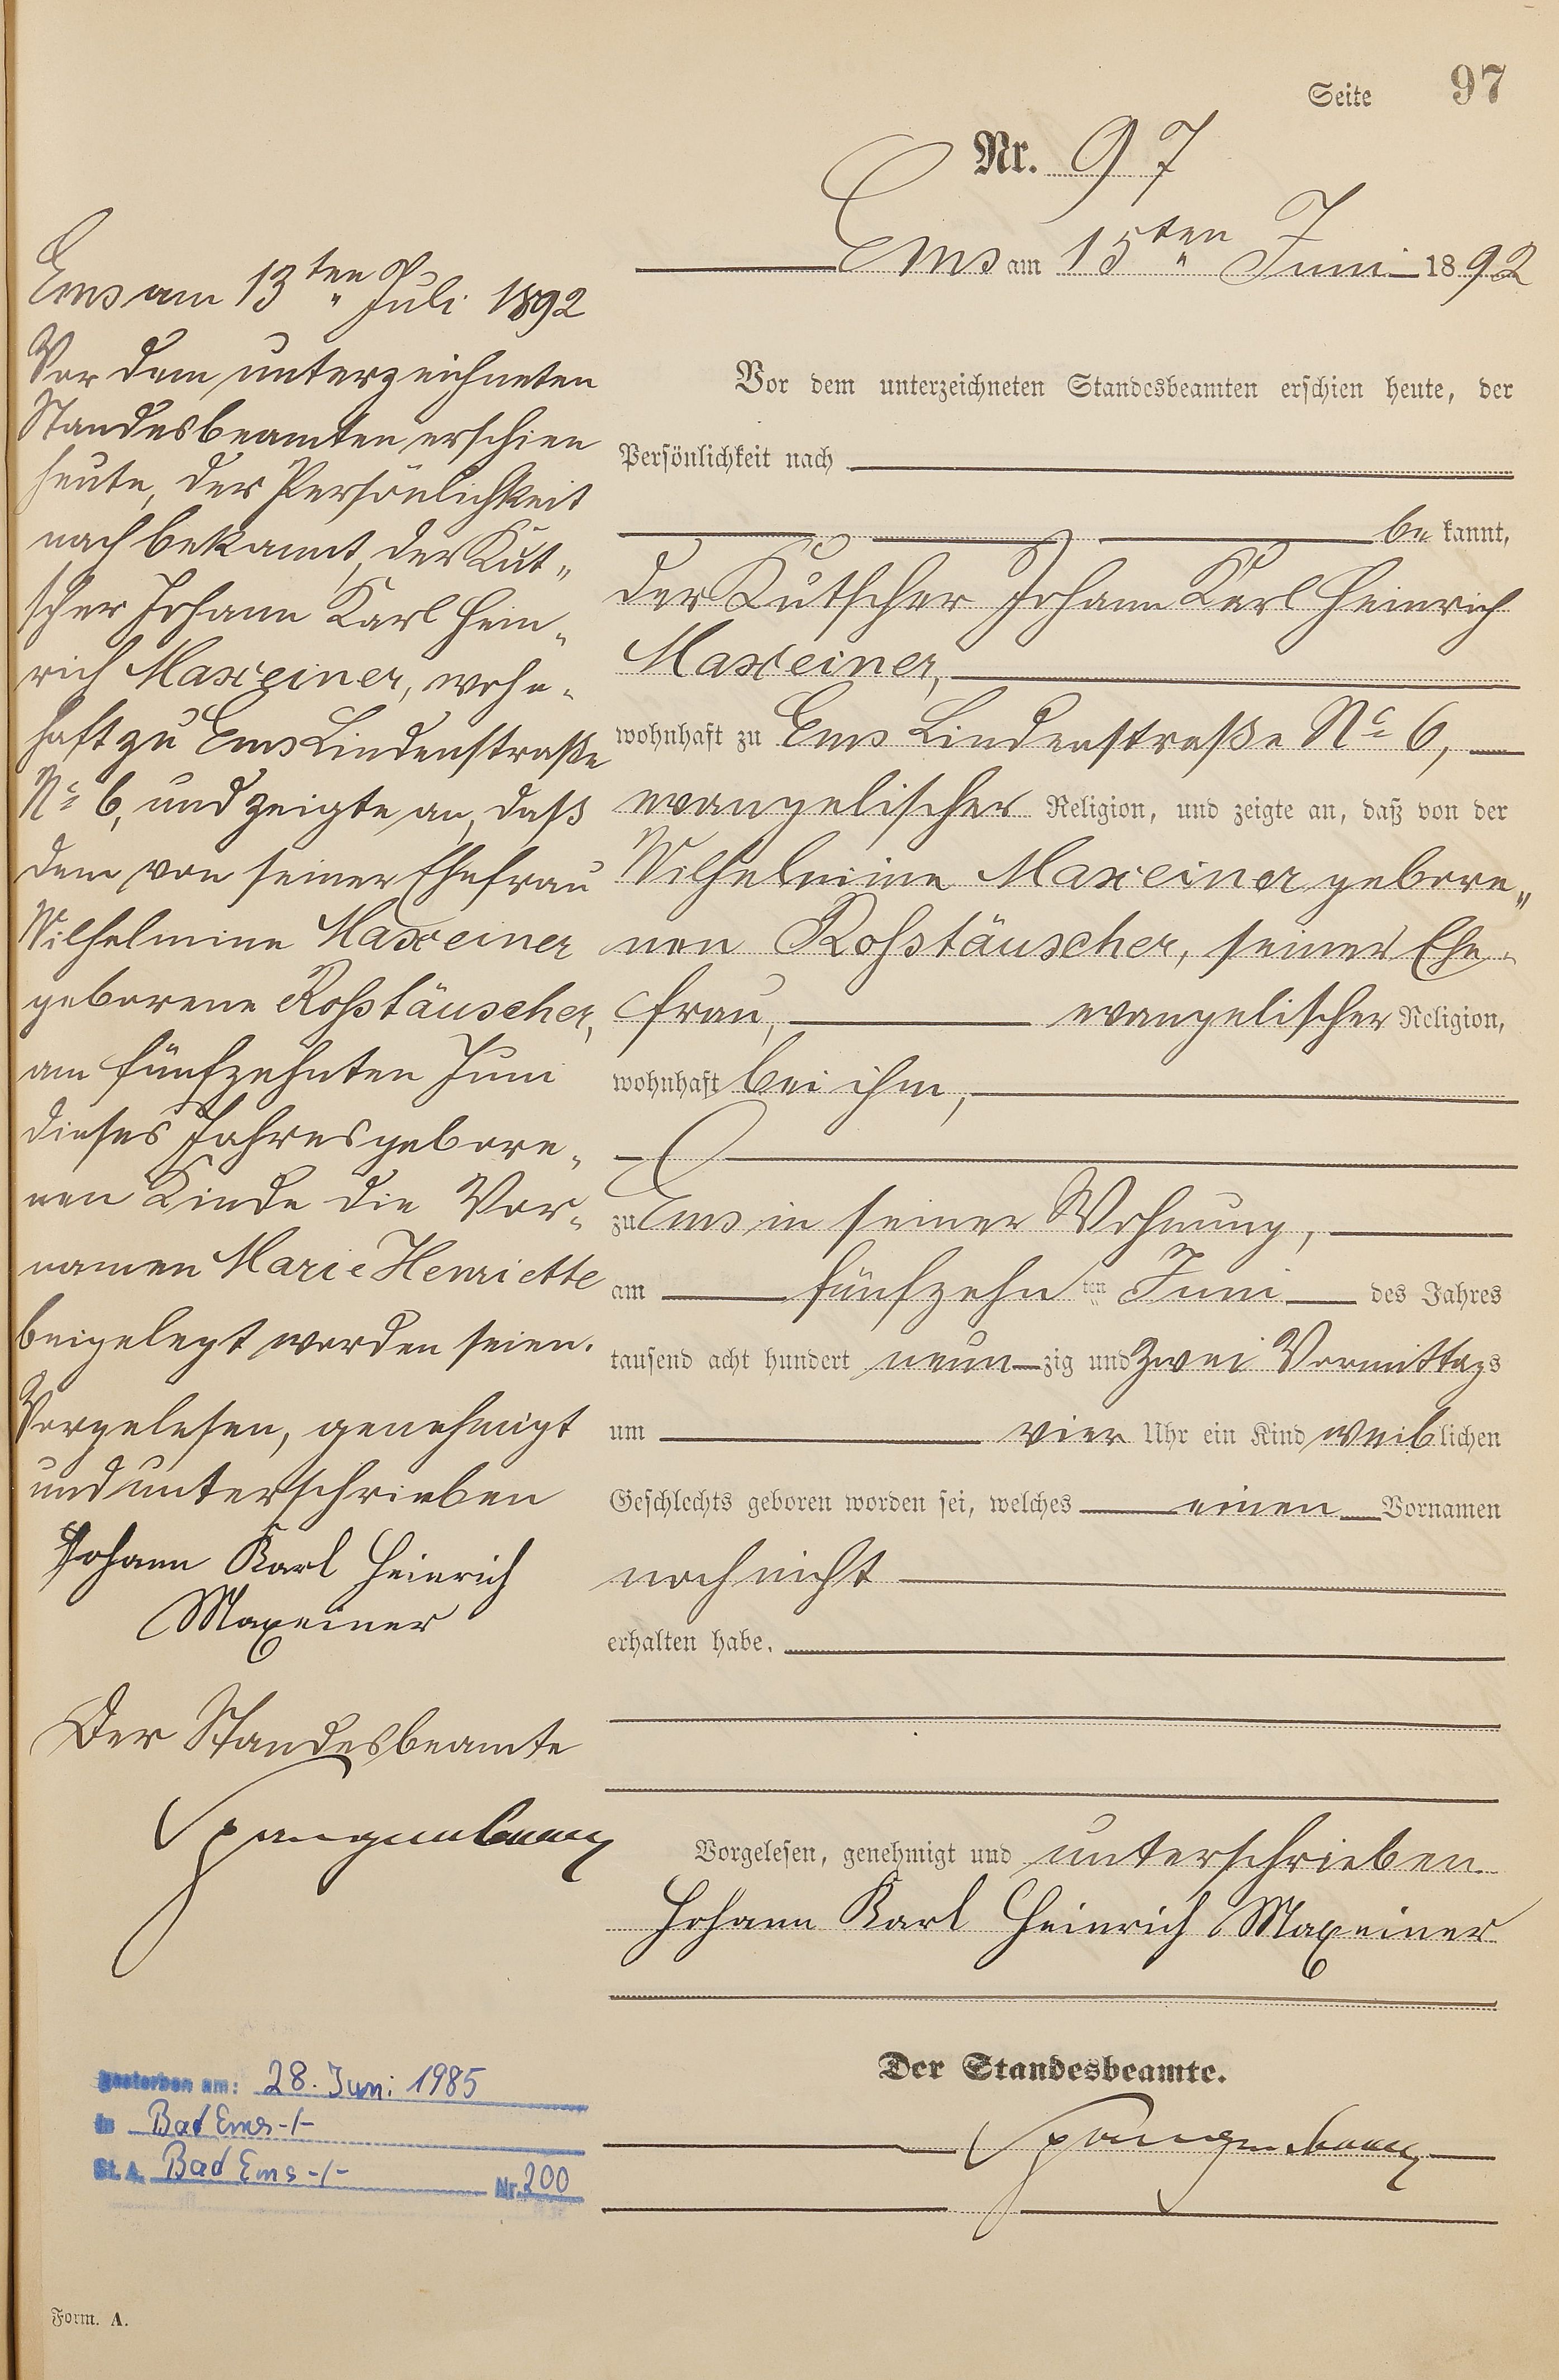 Seite 97
Nr. 97
Ems am 15ten Juni 1892
Vor dem unterzeichneten Standesbeamten erschien heute, der
Persönlichkeit nach
be kannt,
der Kutscher Johann Karl Heinrich
Maxeiner,
wohnhaft zu Ems Lindenstraße No 6,
evangelischer Religion, und zeigte an, daß von der
Wilhelmine Maxeiner gebore„
nen Roßtäuscher, seiner Ehe-
frau, evangelischer Religion,
wohnhaft bei ihm,
zu Ems in seiner Wohnung,
am fünfzehn ten Juni des Jahres
tausend acht hundert neun zig und zwei Vormittags
um vier Uhr ein Kind weiblichen
Geschlechts geboren worden sei, welches einen Vornamen
noch nicht
erhalten habe.
Vorgelesen, genehmigt und unterschrieben
Johann Karl Heinrich Maxeiner
Der Standesbeamte.
Spangenberg
Ems am 13ten Juli 1892
Vor dem unterzeichneten
Standesbeamten erschien
heute, der Persönlichkeit
nach bekannt, der Kut„
scher Johann Karl Hein„
rich Maxeiner, wohn-
haft zu Ems Lindenstraße
No 6, und zeigte an, daß
dem von seiner Ehefrau
Wilhelmine Maxeiner
geborene Roßtäuscher,
am fünfzehnten Juni
dieses Jahres gebore„
nen Kinde die Vor„
namen Marie Henriette
beigelegt worden seien.
Vorgelesen, genehmigt
und unterschrieben
Johann Karl Heinrich
Maxeiner
Der Standesbeamte
Spangenberg
gestorben am: 28. Juni 1985
in Bad Ems -/-
St. A. Bad Ems -/- Nr. 200
Form. A.